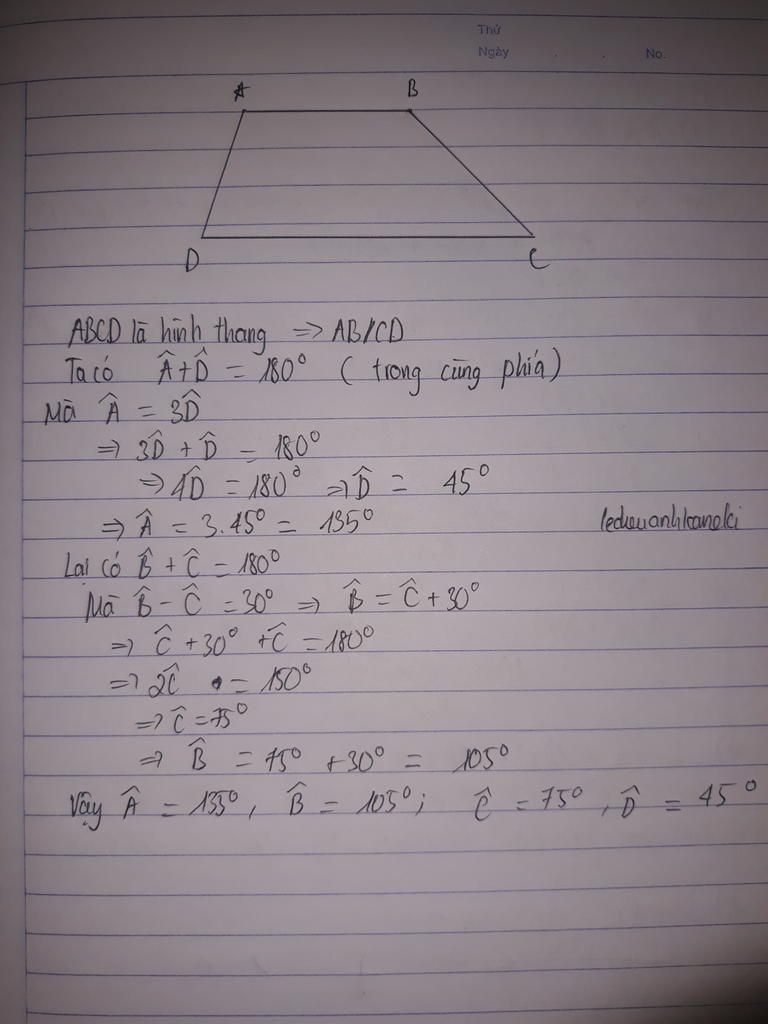 Thứ
Ngày . . No.
A B
D C
ABCD là hình thang => AB//CD
Ta có Â + D̂ = 180° ( trong cùng phía )
Mà Â = 3D̂
=> 3D̂ + D̂ = 180°
=> 4D̂ = 180° => D̂ = 45°
=> Â = 3.45° = 135°
Lại có B̂ + Ĉ = 180°
Mà B̂ - Ĉ = 30° => B̂ = Ĉ + 30°
=> Ĉ + 30° + Ĉ = 180°
=> 2Ĉ = 150°
=> Ĉ = 75°
=> B̂ = 75° + 30° = 105°
Vậy Â = 135°, B̂ = 105°; Ĉ = 75°, D̂ = 45°